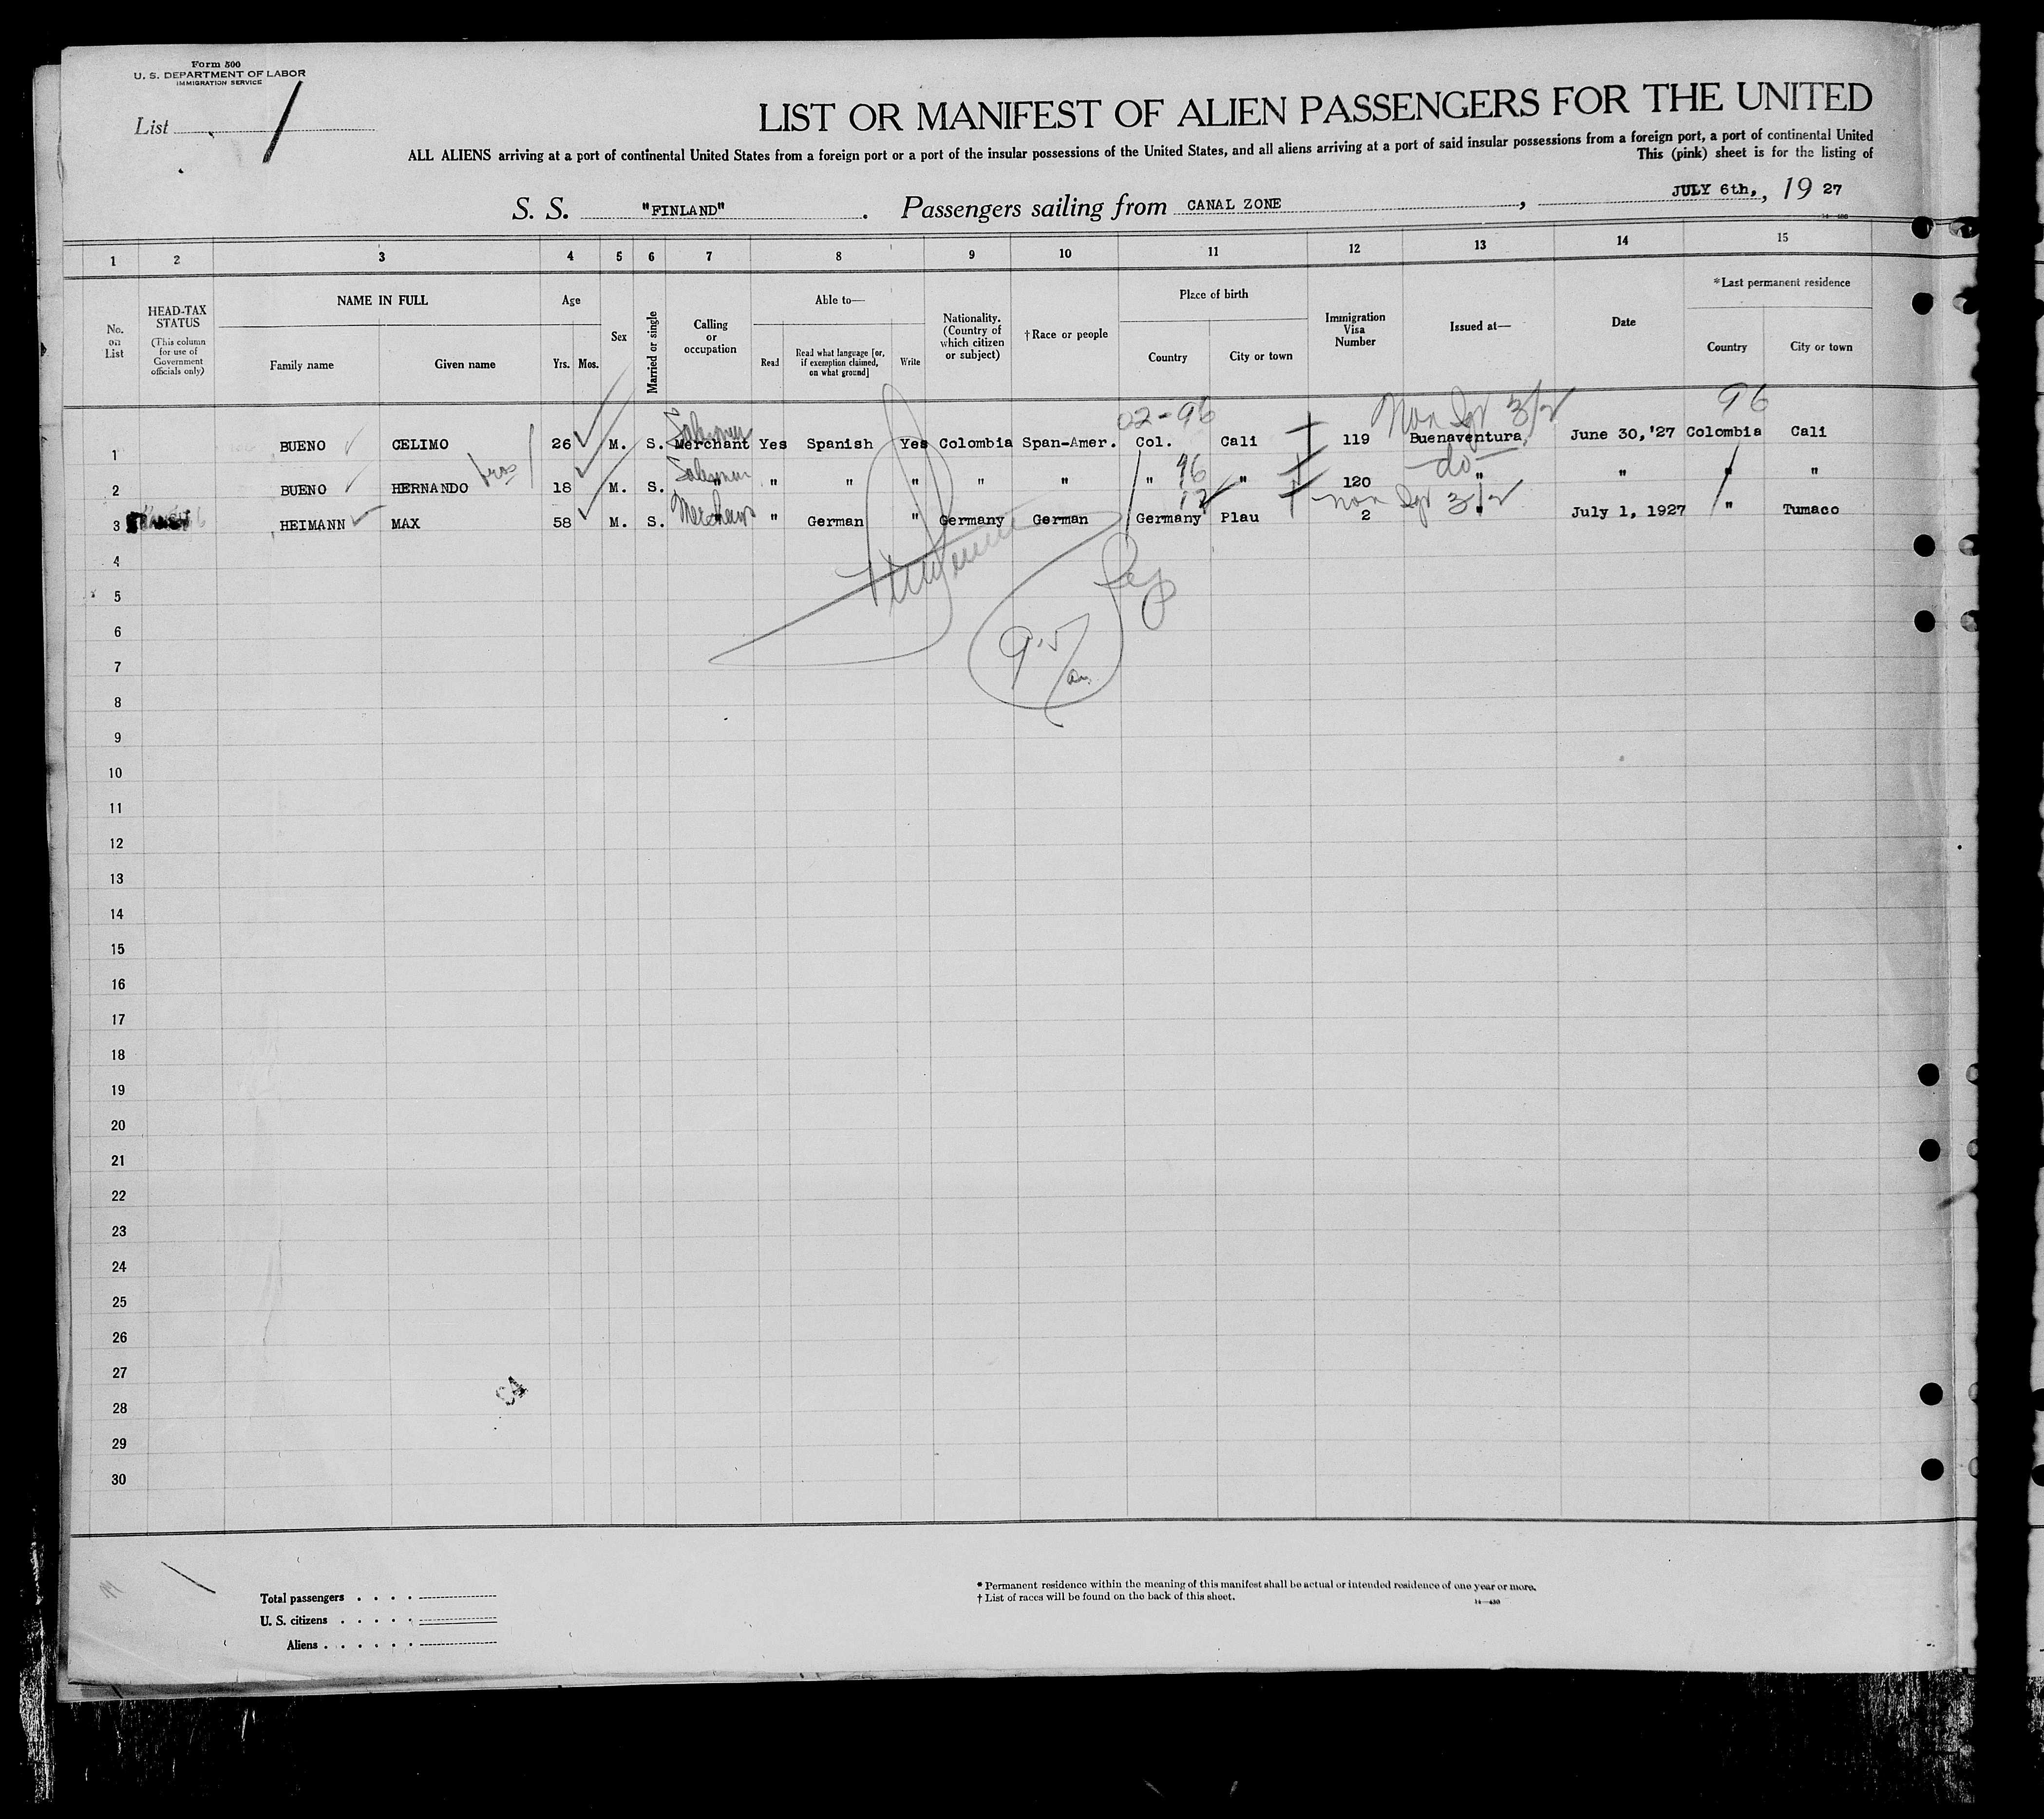 Form 500
U. S. DEPARTMENT OF LABOR
IMMIGRATION SERVICE
List 1
LIST OR MANIFEST OF ALIEN PASSENGERS FOR THE UNITED
ALL ALIENS arriving at a port of continental United States from a foreign port or a port of the insular possessions of the United States, and all aliens arriving at a port of said insular possessions from a foreign port, a port of continental United
This (pink) sheet is for the listing of
S. S. "FINLAND". Passengers sailing from CANAL ZONE, JULY 6th,, 19 27
1 2 3 4 5 6 7 8 9 10 11 12 13 14 15
No. on List
HEAD-TAX STATUS
(This column for use of Government officials only)
NAME IN FULL
Family name
Given name
Age
Yrs. Mos.
Sex
Married or single
Calling or occupation
Able to—
Read
Read what language [or, if exemption claimed, on what ground]
Write
Nationality. (Country of which citizen or subject)
†Race or people
Place of birth
Country
City or town
Immigration Visa Number
Issued at—
Date
*Last permanent residence
Country
City or town
02-96 Non 3/2 96
Salesman
1 BUENO CELIMO 26 M. S. Merchant Yes Spanish Yes Colombia Span-Amer. Col. Cali 119 Buenaventura, June 30,'27 Colombia Cali
bros Salesman 96 do
2 BUENO HERNANDO 18 M. S. " " " " " " " " 120 " " " "
Merchant 12 non 3/2
3 HEIMANN MAX 58 M. S. " " German " Germany German Germany Plau 2 " July 1, 1927 " Tumaco
4
5
6
7
8
9
10
11
12
13
14
15
16
17
18
19
20
21
22
23
24
25
26
27
28
29
30
Total passengers
U. S. citizens
Aliens
* Permanent residence within the meaning of this manifest shall be actual or intended residence of one year or more.
† List of races will be found on the back of this sheet.
14—430